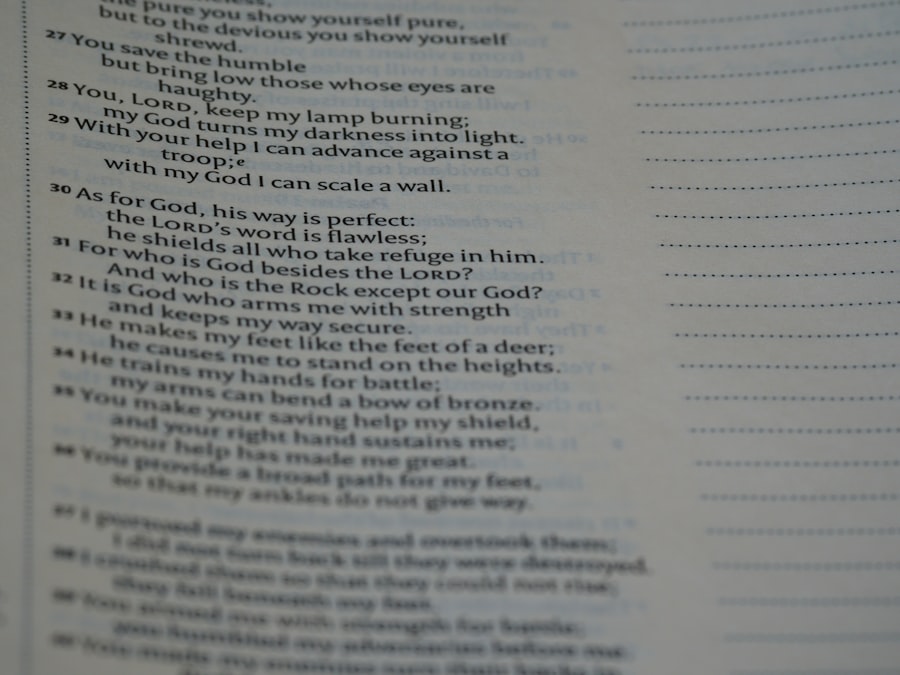 the pure you show yourself pure,
but to the devious you show yourself
shrewd.
27 You save the humble
but bring low those whose eyes are
haughty.
28 You, LORD, keep my lamp burning;
my God turns my darkness into light.
29 With your help I can advance against a
troop;e
with my God I can scale a wall.
30 As for God, his way is perfect:
the LORD'S word is flawless;
he shields all who take refuge in him.
31 For who is God besides the LORD?
And who is the Rock except our God?
32 It is God who arms me with strength
and keeps my way secure.
33 He makes my feet like the feet of a deer;
he causes me to stand on the heights.
34 He trains my hands for battle;
my arms can bend a bow of bronze.
35 You make your saving help my shield,
and your right hand sustains me;
your help has made me great.
36 You provide a broad path for my feet,
so that my ankles do not give way.
37 I pursued my enemies and overtook them;
I did not turn back till they were destroyed.
38 I crushed them so that they could not rise;
they fell beneath my feet.
39 You armed me with strength for battle;
you humbled my adversaries before me.